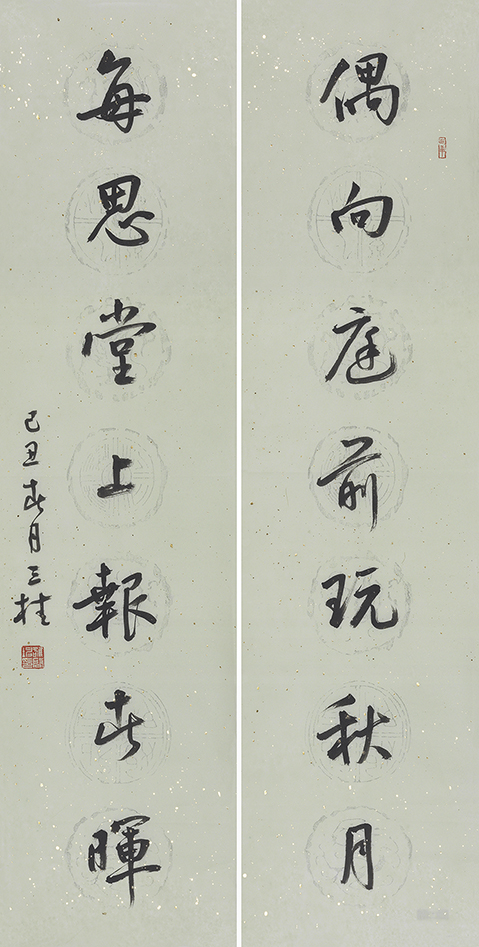 偶向庭前玩秋月
每思堂上報春暉
己丑春月三桂